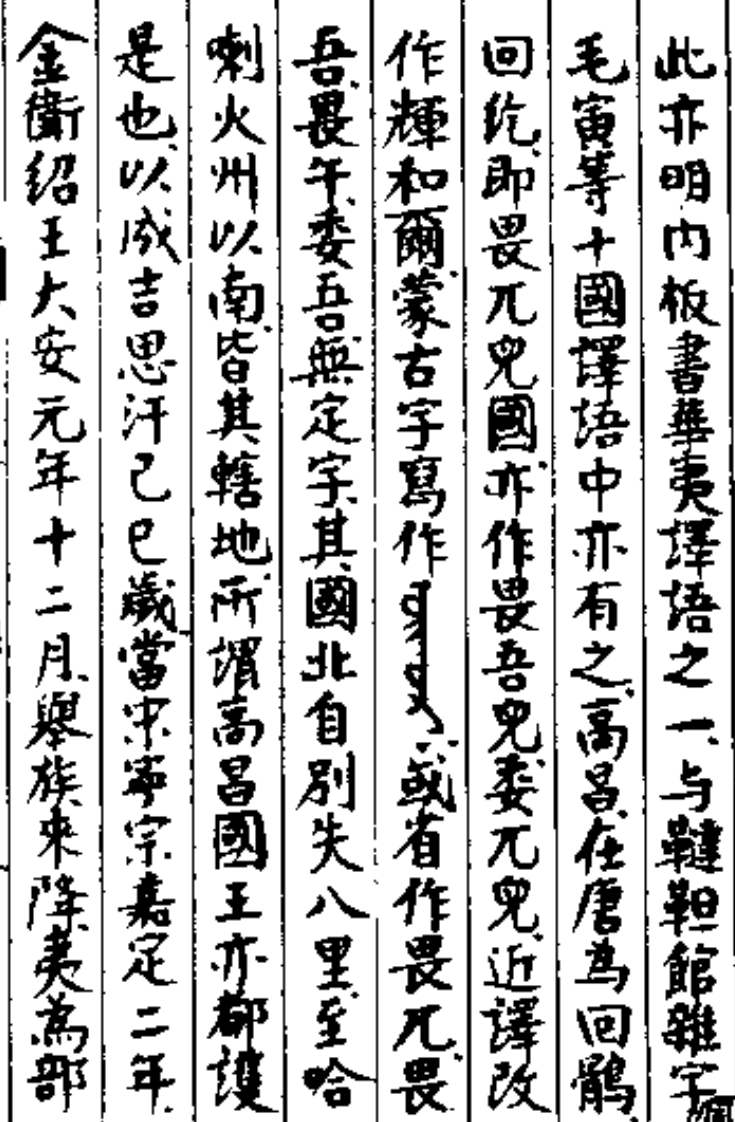 此亦明内板書華夷譯语之一、与韃靼館雜字
毛寅等十國譯语中亦有之、高昌、在唐為回鶻、
回纥、即畏兀兒國、亦作畏吾兒、委兀兒、近譯改
作輝和爾、蒙古字寫作、或省作畏兀、畏
吾、畏午、委吾、無定字、其國北自別失八里、至哈
喇火州以南、皆其轄地、所谓高昌國王亦都護
是也、以成吉思汗己巳歲、當宋寧宗嘉定二年、
金衛绍王大安元年十二月、舉族來降、夷為部